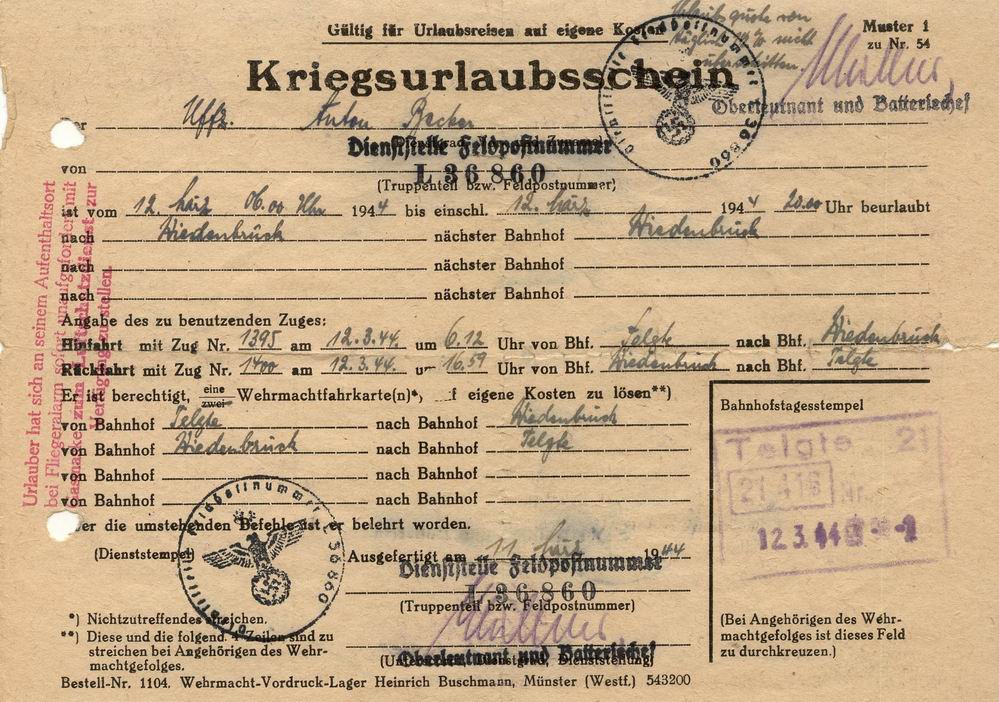 Gültig für Urlaubsreisen auf eigene Kosten
Muster 1
zu Nr. 54
Urlaubsquote von
täglich 10% nicht
überschritten
Kriegsurlaubsschein
Oberleutnant und Batteriechef
Der Uffz. Anton Becker
Dienststelle Feldpostnummer
von L 36860
(Truppenteil bzw. Feldpostnummer)
ist vom 12. März 06.00 Uhr 1944 bis einschl. 12. März 1944 20.00 Uhr beurlaubt
nach Wiedenbrück nächster Bahnhof Wiedenbrück
nach nächster Bahnhof
nach nächster Bahnhof
Urlauber hat sich an seinem Aufenthaltsort
bei Fliegeralarm sofort unaufgefordert mit
Gasmaske zum Luftschutzdienst zur
Verfügung zu stellen.
Angabe des zu benutzenden Zuges:
Hinfahrt mit Zug Nr. 1395 am 12.3.44. um 6.12 Uhr von Bhf. Telgte nach Bhf. Wiedenbrück
Rückfahrt mit Zug Nr. 1400 am 12.3.44. um 16.59 Uhr von Bhf. Wiedenbrück nach Bhf. Telgte
Er ist berechtigt, eine zwei Wehrmachtfahrkarte(n)*, f eigene Kosten zu lösen**)
von Bahnhof Telgte nach Bahnhof Wiedenbrück
von Bahnhof Wiedenbrück nach Bahnhof Telgte
von Bahnhof nach Bahnhof
von Bahnhof nach Bahnhof
Über die umstehenden Befehle ist er belehrt worden.
(Dienststempel)
Ausgefertigt am 11. März 1944
Dienststelle Feldpostnummer
L 36860
(Truppenteil bzw. Feldpostnummer)
Oberleutnant und Batteriechef
*) Nichtzutreffendes streichen.
**) Diese und die folgend. 4 Zeilen sind zu
streichen bei Angehörigen des Wehr-
machtgefolges.
Bestell-Nr. 1104. Wehrmacht-Vordruck-Lager Heinrich Buschmann, Münster (Westf.) 543200
Bahnhofstagesstempel
Telgte
12.3.44
(Bei Angehörigen des Wehr-
machtgefolges ist dieses Feld
zu durchkreuzen.)